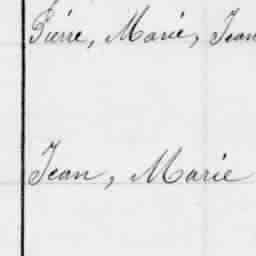 Pierre, Marie, Jean
Jean, Marie